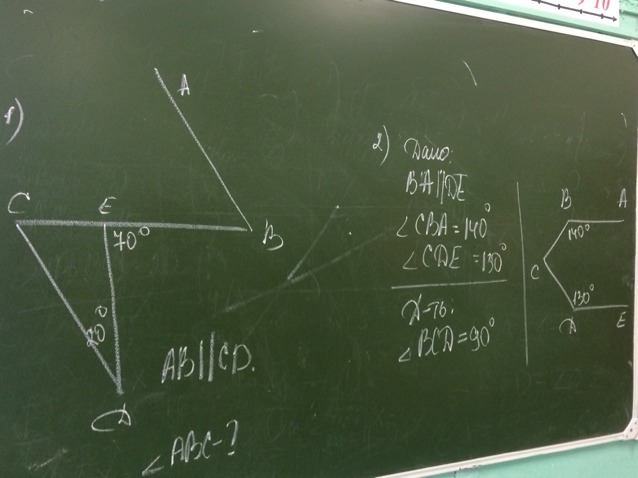 1)
A
C E
70°
B
D
AB||CD.
∠ABC-?
2) Дано:
BA||DE
∠CBA=140°
∠CDE=130°
Д-ть:
∠BCD=90°
B A
140°
C
130°
D E
10